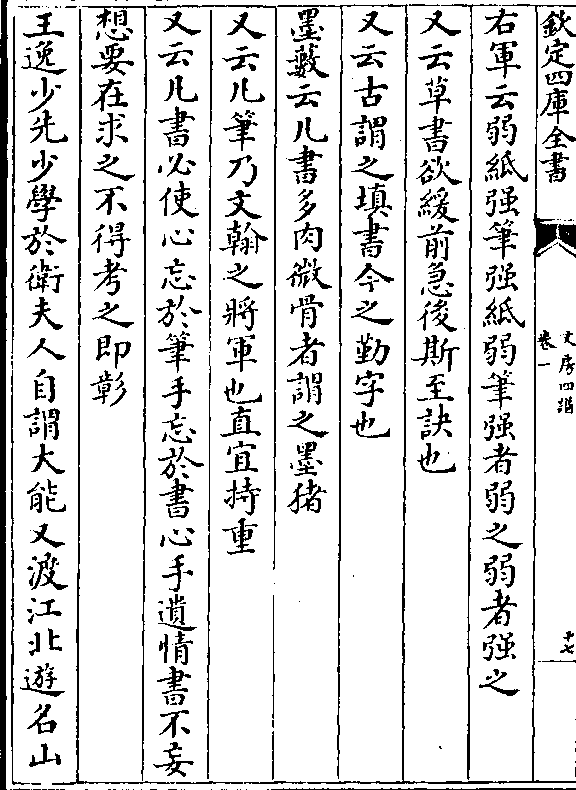 欽定四庫全書
文房四譜
卷一
十七
右軍云弱紙强筆强紙弱筆强者弱之弱者强之
又云草書欲緩前急後斯至訣也
又云古謂之填書今之勤字也
墨藪云凡書多肉微骨者謂之墨猪
又云凡筆乃文翰之將軍也直宜持重
又云凡書必使心忘於筆手忘於書心手遺情書不妄
想要在求之不得考之即彰
王逸少先少學於衛夫人自謂大能又渡江北遊名山